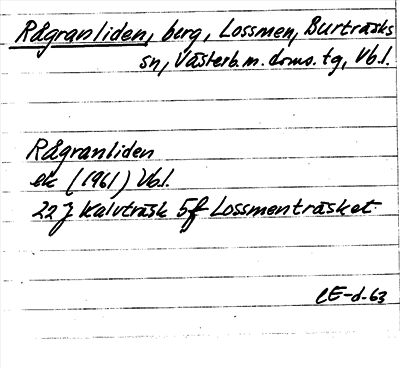 Rågranliden, berg, Lossmen, Burträsks
sn, Västerb. m. doms. tg, Vb. l.
Rågranliden
ek (1961) Vb. l.
22 J Kalvträsk 5f Lossmenträsket
CE-d-63